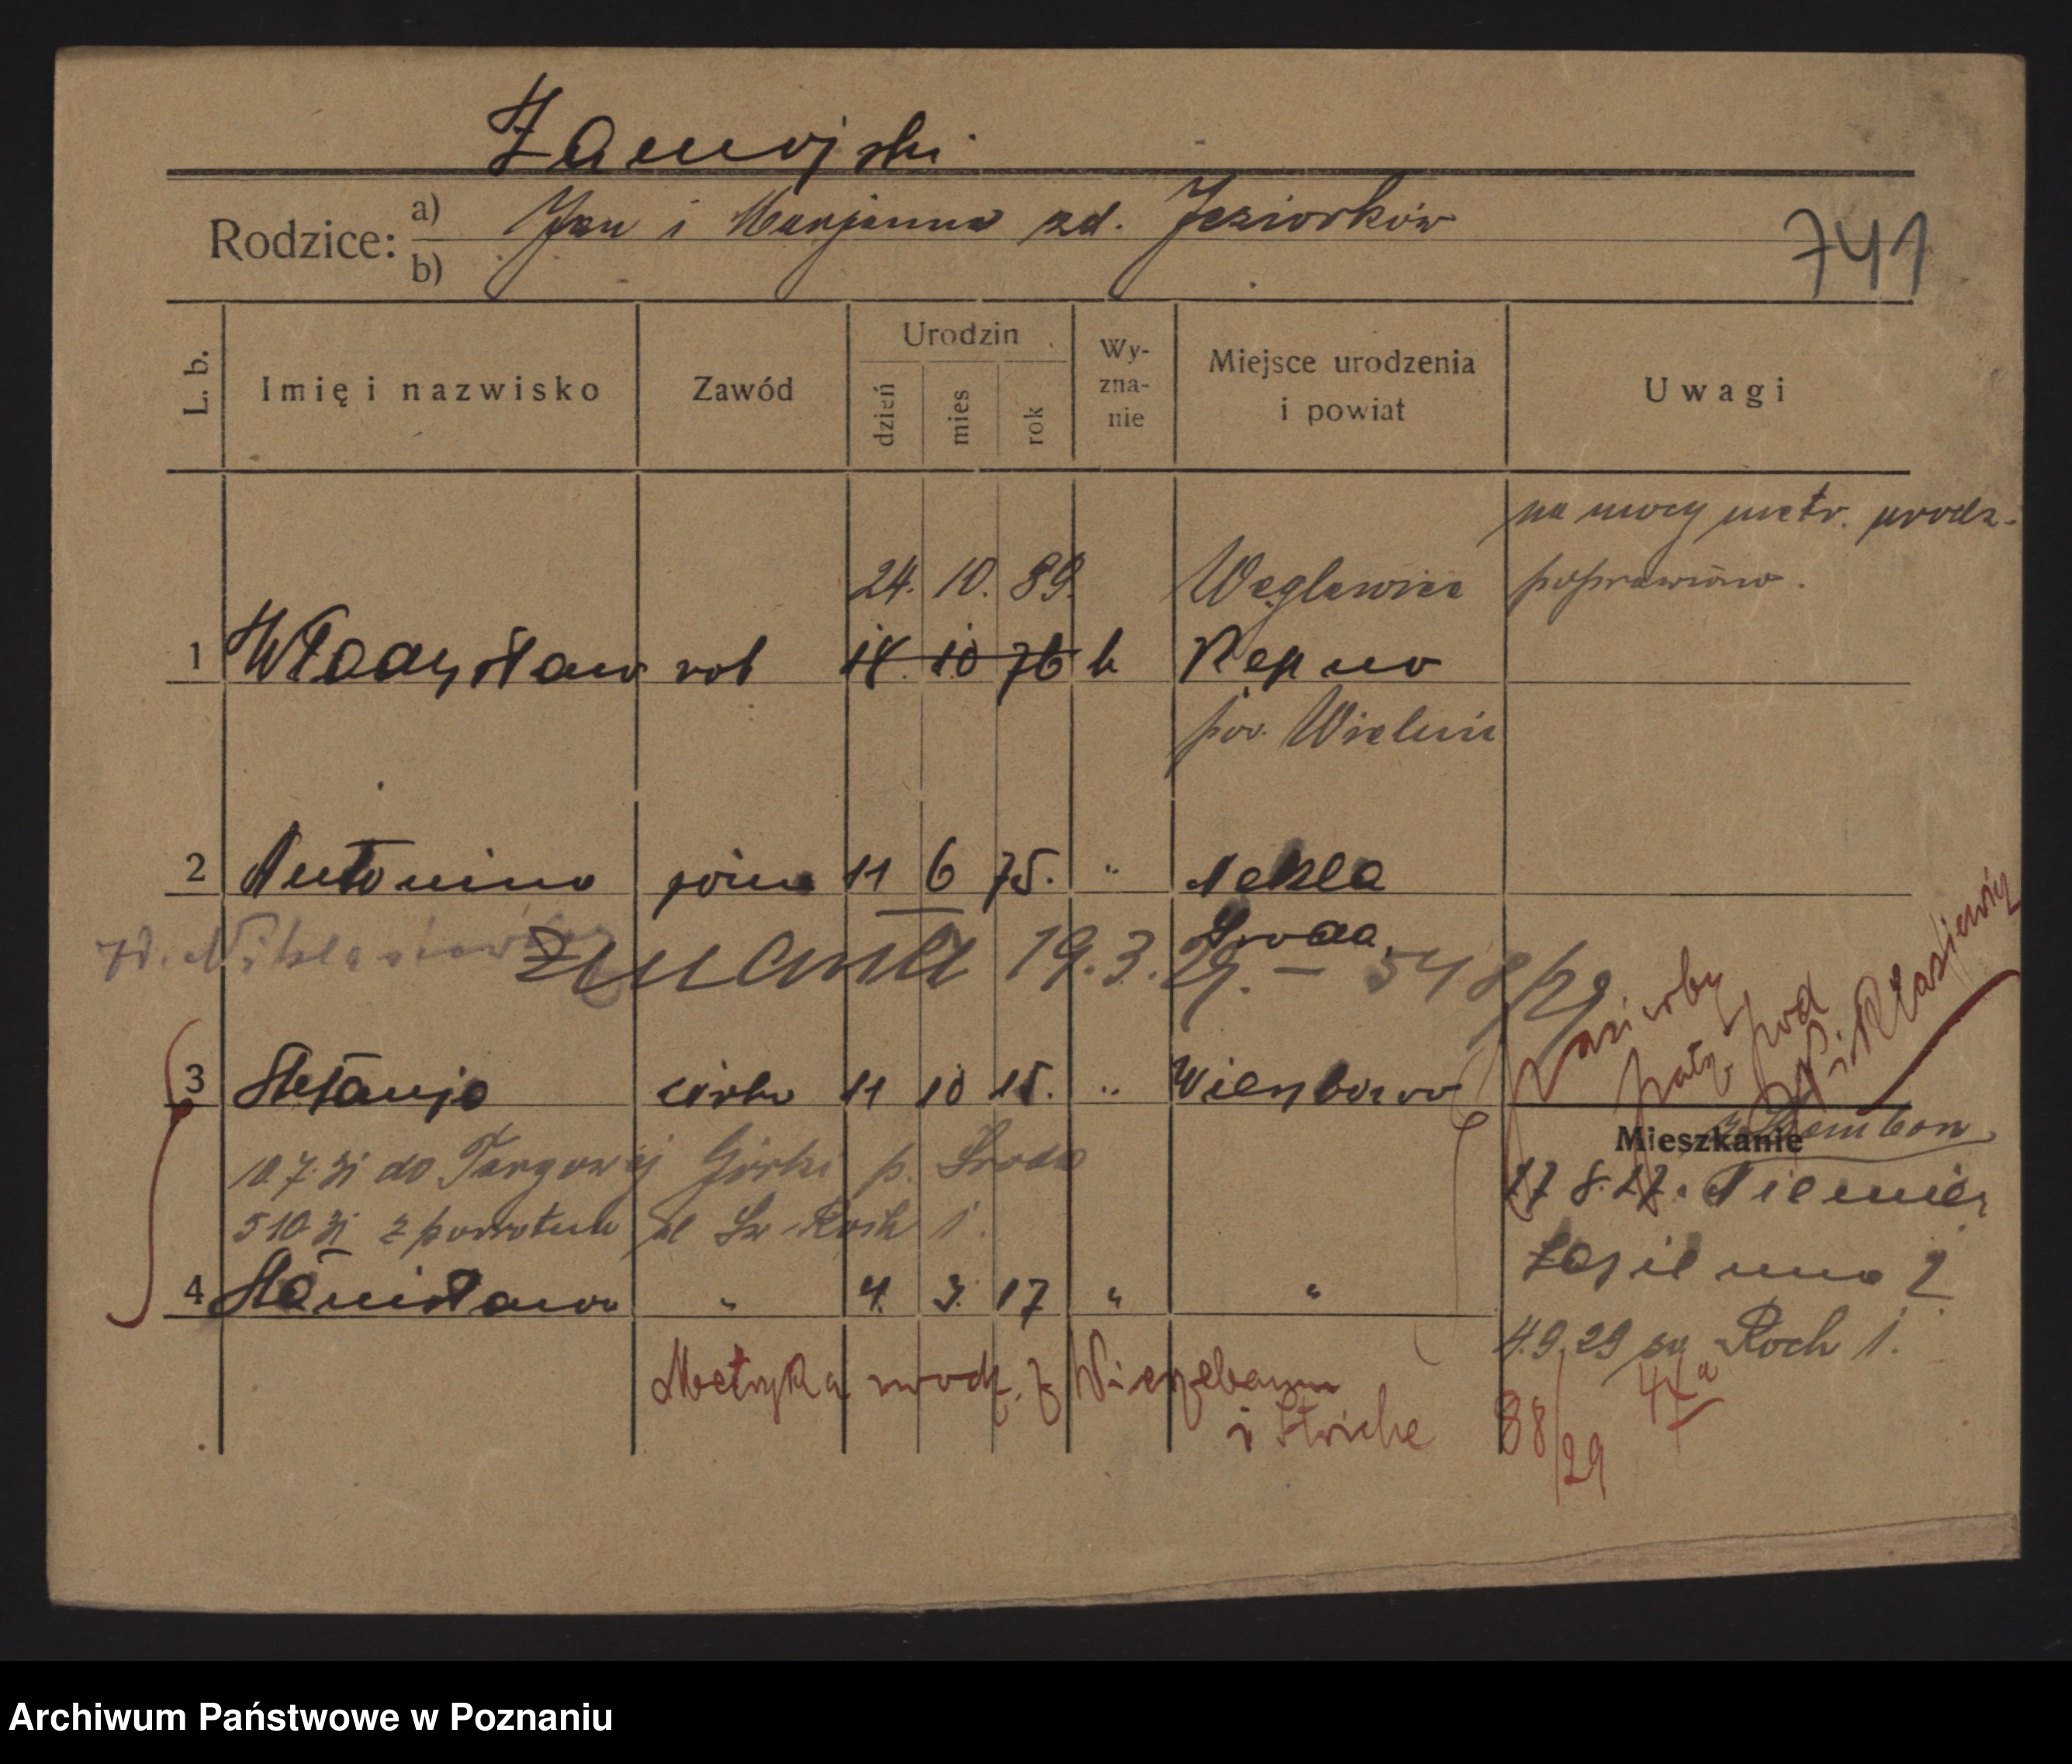 Zamojski
Rodzice: a) Jan i Marjanna zd. Jeziorków
b)
741
L. b.
Imię i nazwisko
Zawód
Urodzin
dzień
mies
rok
Wy-
zna-
nie
Miejsce urodzenia
i powiat
Uwagi
na mocy metr. urodz.
24. 10. 89. Węglewice poprawiono.
1 Władysław rob 14. 10 76 k Kempno
pow. Wieluń
2 Antonina żona 11 6 75. " Nekla
Środa
zmarła 19.3.29. — 548/29
pasierby
patrz pod
Niklasiewicz
3 Stefanja córka 11 10 15. " Wierzbowo
Mieszkanie
10.7.31 do Targowej Górki p. Środa
27 8.27. Niemier
5 10 31 z powrotem ul Św Roch 1.
4 Stanisława " 4. 3. 17 " "
2
4.9.29 św Roch 1.
Metryka urodz. z
88/29
Archiwum Państwowe w Poznaniu